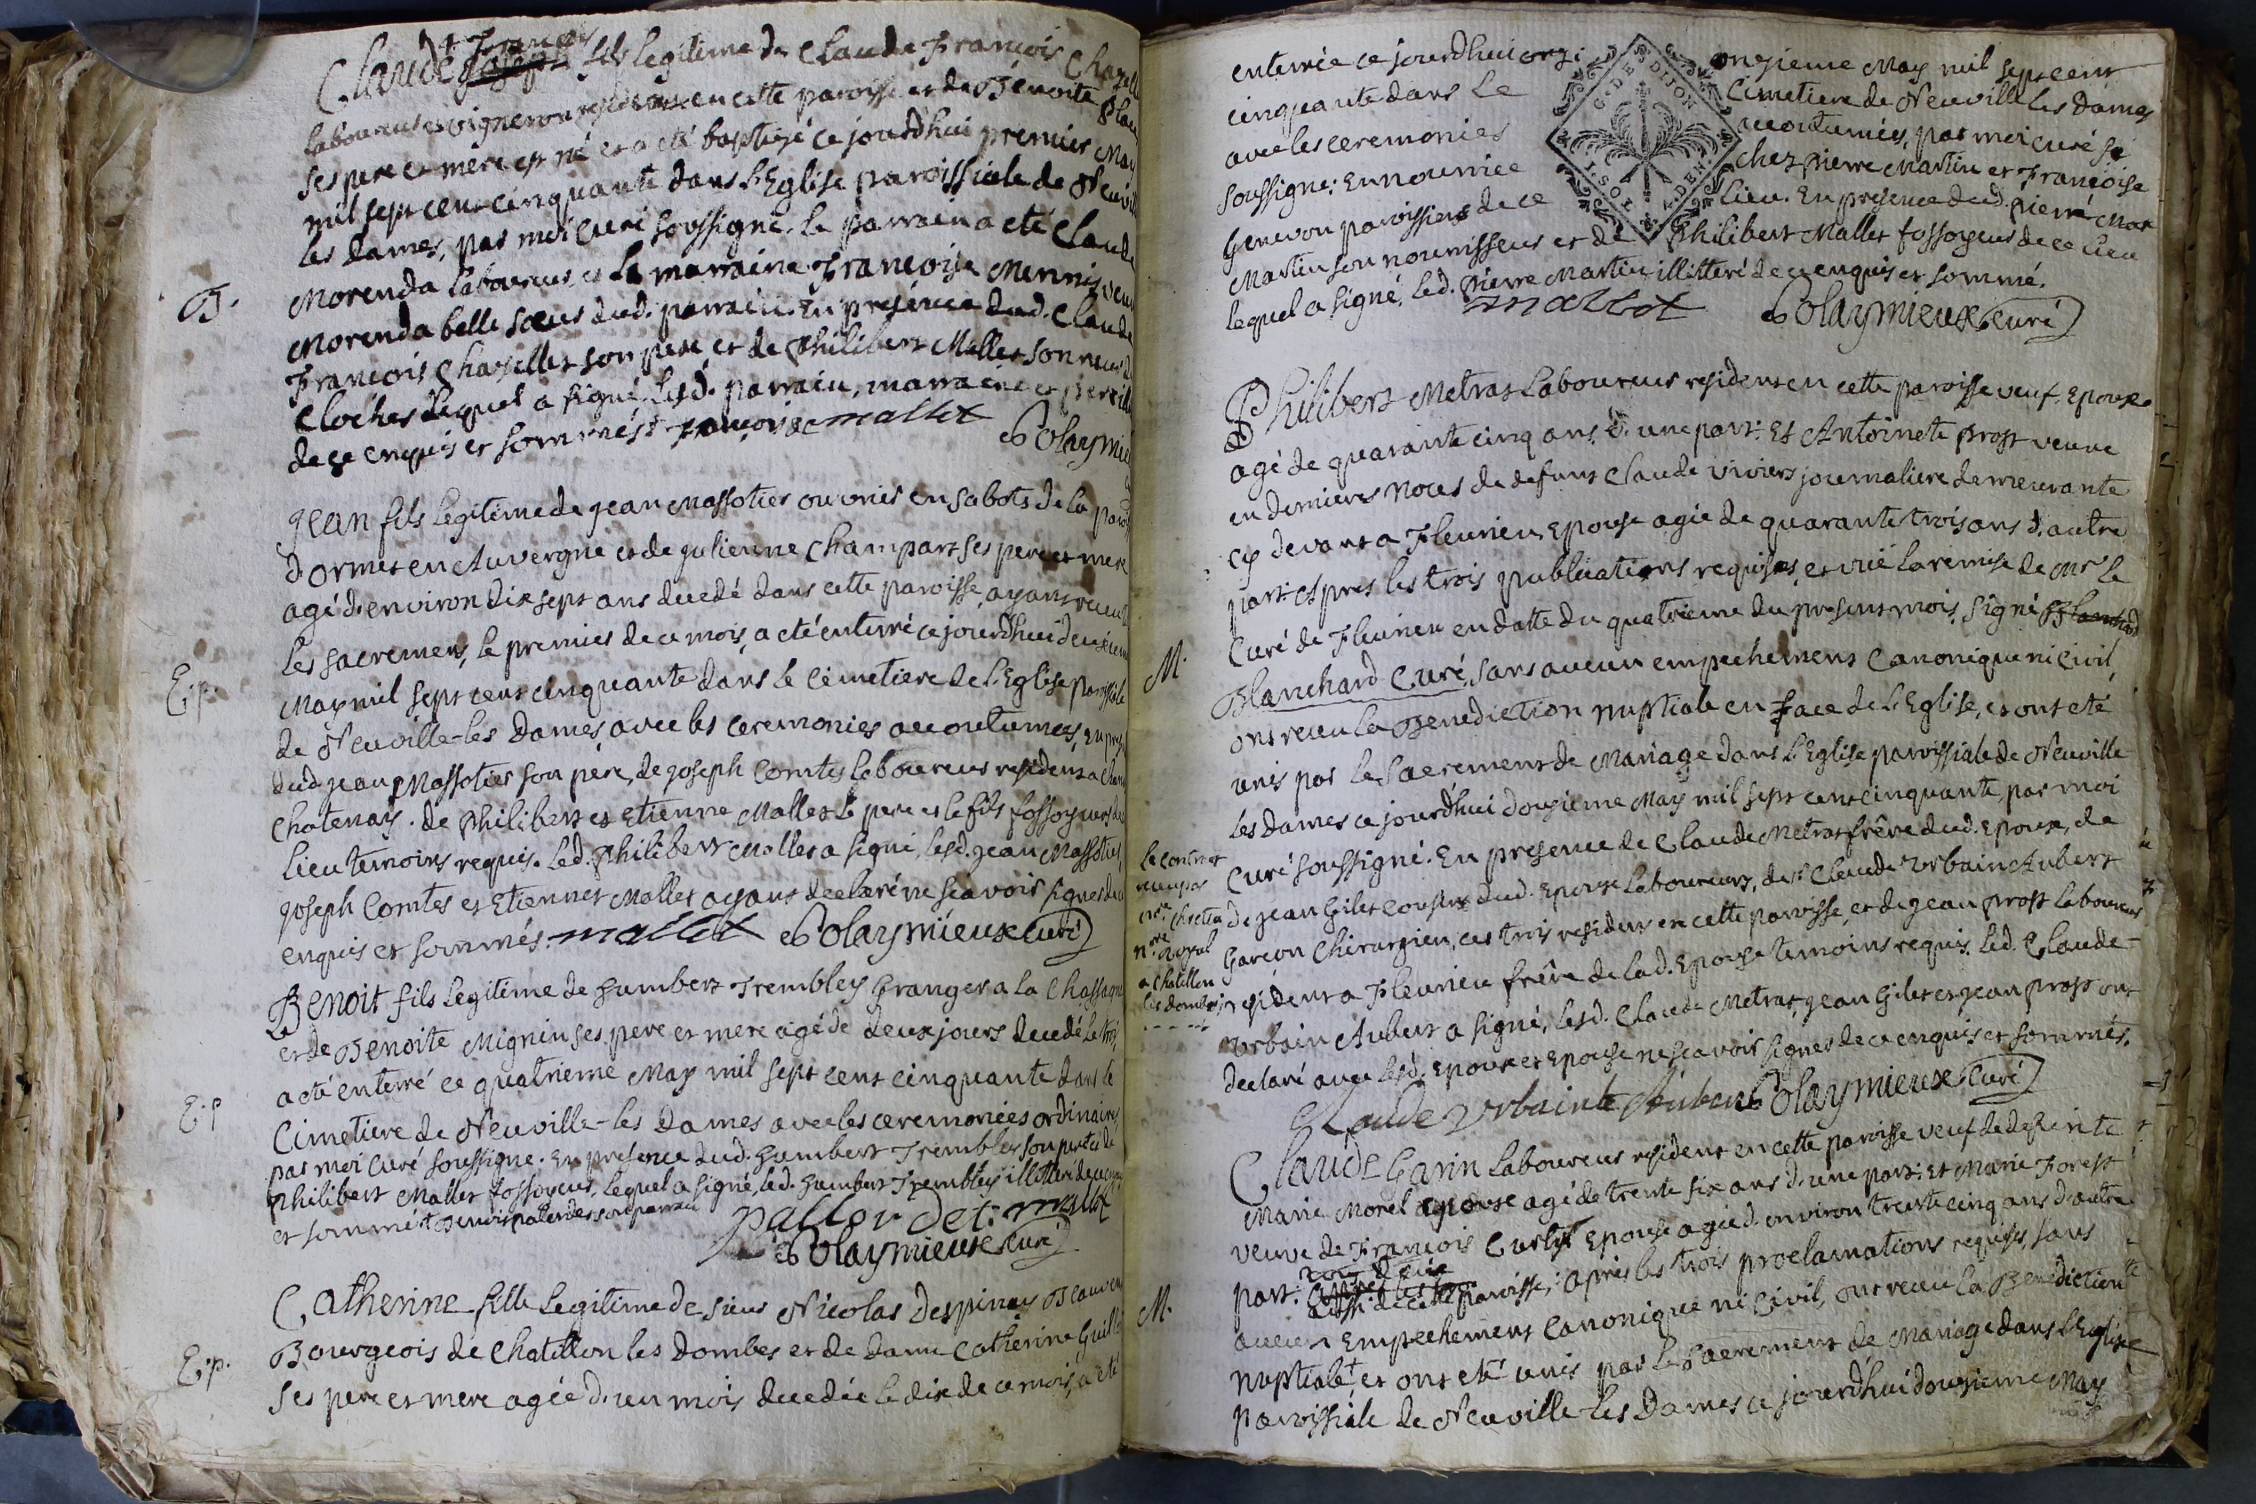 François
Claude Joseph fils legitime de Claude François Chazell
laboureur et vigneron residents en cette paroisse et de Benoite
ses pere et mere est né et a eté baptizé ce jourdhui premier May
mil sept cent cinquante dans l'Eglise paroissiale de Neuvill
les Dames, par moi curé soussigné. le parrain a eté Claude
B.
Morenda laboureur, et la marraine Françoise veuv
Morenda belle sœur dud. parrain. En présence dud. Claude
François Chazelles son pere, et de Philibert Mallet sonneur de
cloches lequel a signé, lesd. parrain, marraine et pere ill
de ce enquis et sommés. mallet Polaymie
Jean fils legitime de Jean Massotier ouvrier en sabots de la paroi
d'ormet en Auvergne et de Julienne Champart ses pere et mere
agé d'environ dix sept ans decedé dans cette paroisse, ayant receu
les sacremens, le premier de ce mois, a eté enterré ce jourdhui deuxieme
E.p.
May mil sept cent cinquante dans le cimetiere de l'Eglise paroissiale
de Neuville-les Dames, avec les ceremonies accoutumées, en pres
dud. Jean Massotier son pere, de Joseph Comtes laboureur resident a
Chatenay. de Philibert et Etienne Mallet le pere et le fils fossoyeurs de
lieu temoins requis. led. Philibert Mallet a signé, lesd. Jean Massotier,
Joseph Comtes et Etienne Mallet ayant declaré ne scavoir signer de ce
enquis et sommés. mallet Polaymieux curé
Benoit fils legitime de Humbert Trembley Granger a la Chassagne
et de Benoite Mignin ses pere et mere agé de deux jours decedé le trois
a eté enterré ce quatrieme May mil sept cent cinquante dans le
E.p
Cimetiere de Neuville-les Dames avec les ceremonies ordinaires
par moi curé soussigné. En présence dud. Humbert Trembley son pere et de
Philibert Mallet fossoyeur, lequel a signé, led. Humbert Trembley illitteré de ce enquis
et sommé son parrain
mallet
Polaymieux curé
Catherine fille legitime de sieur Nicolas Despiney
Bourgeois de Chatillon les Dombes et de dame Catherine
E.p.
ses pere et mere agée d'un mois decedée le dix de ce mois, a eté
enterrée ce jourdhui onzieme May mil sept cent
cinquante dans le Cimetiere de Neuville les Dames
avec les ceremonies accoutumées, par moi curé
soussigné: En nourrice chez Pierre Martin et Françoise
Genevon paroissiens de ce lieu. En presence dud. Pierre Mar
Martin son nourrisseur et de Philibert Mallet fossoyeur de ce lieu
lequel a signé, led. Pierre Martin illitteré de ce enquis et sommé.
mallet Polaymieux curé
G. DE DIJON
Philibert Metras laboureur resident en cette paroisse veuf, Epoux
agé de quarante cinq ans, d'une part: Et Antoinete Prost veuve
en dernieres noces de defunt Claude Viviers journaliere demeurante
cy devant a Fleurieu, Epouse agée de quarante trois ans d'autre
part. Apres les trois publications requises, et vuë la remise de Mr le
Curé de Fleurieu en datte du quatrieme du present mois, signé Blanchard
M.
Blanchard Curé, sans aucun empechement canonique ni civil,
ont receu la Benediction nuptiale en face de l'Eglise, et ont eté
unis par le sacrement de Mariage dans l'Eglise paroissiale de Neuville
les Dames ce jourdhui douzieme May mil sept cent cinquante, par moi
Curé soussigné. En presence de Claude Metras frêre dud. Epoux, de
le contract
receu par
de Jean Gilet cousin dud. Epoux laboureurs, de Sr Claude Urbain Aubert
garçon Chirurgien, ces trois residens en cette paroisse, et de Jean Prost laboureur
nre royal
a Chatillon
les dombes
resident a Fleurieu frêre de lad. Epouse temoins requis. led. Claude
Urbain Aubert a signé, lesd. Claude Metras, Jean Gilet et Jean Prost ont
declaré avec lesd. Epoux et Epouse ne scavoir signer de ce enquis et sommés.
Claude Urbain Aubert Polaymieux curé
Claude Garin laboureur resident en cette paroisse veuf de defunte
Marie Morel Epoux agé de trente six ans d'une part: Et Marie Forest
veuve de François Curtil Epouse agée d'environ trente cinq ans d'autre
part: aussi de cette paroisse; Apres les trois proclamations requises, sans
M.
aucun Empechement canonique ni civil, ont receu la Benediction
nuptiale, et ont eté unis par le sacrement de Mariage dans l'Eglise
paroissiale de Neuville-les Dames ce jourdhui douzieme May